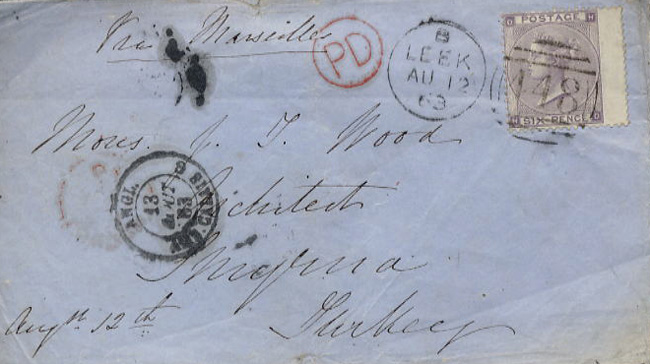 Via Marseilles
PD
B
LEEK
AU 12
63
POSTAGE
SIX PENCE
Mons. J. T. Wood
Architect
ANGL.
13
AOUT
63
Smyrna
Augst 12th
Turkey